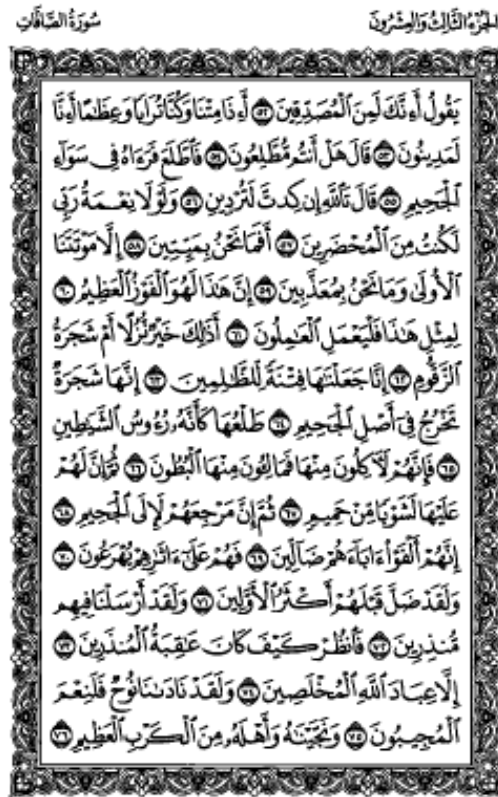 الجزء الثالث والعشرون
سورة الصافات
يَقُولُ أَءِنَّكَ لَمِنَ ٱلْمُصَدِّقِينَ ٥٢ أَءِذَا مِتْنَا وَكُنَّا تُرَابًا وَعِظَٰمًا أَءِنَّا
لَمَدِينُونَ ٥٣ قَالَ هَلْ أَنتُم مُّطَّلِعُونَ ٥٤ فَٱطَّلَعَ فَرَءَاهُ فِى سَوَآءِ
ٱلْجَحِيمِ ٥٥ قَالَ تَٱللَّهِ إِن كِدتَّ لَتُرْدِينِ ٥٦ وَلَوْلَا نِعْمَةُ رَبِّى
لَكُنتُ مِنَ ٱلْمُحْضَرِينَ ٥٧ أَفَمَا نَحْنُ بِمَيِّتِينَ ٥٨ إِلَّا مَوْتَتَنَا
ٱلْأُولَىٰ وَمَا نَحْنُ بِمُعَذَّبِينَ ٥٩ إِنَّ هَٰذَا لَهُوَ ٱلْفَوْزُ ٱلْعَظِيمُ ٦٠
لِمِثْلِ هَٰذَا فَلْيَعْمَلِ ٱلْعَٰمِلُونَ ٦١ أَذَٰلِكَ خَيْرٌ نُّزُلًا أَمْ شَجَرَةُ
ٱلزَّقُّومِ ٦٢ إِنَّا جَعَلْنَٰهَا فِتْنَةً لِّلظَّٰلِمِينَ ٦٣ إِنَّهَا شَجَرَةٌ
تَخْرُجُ فِىٓ أَصْلِ ٱلْجَحِيمِ ٦٤ طَلْعُهَا كَأَنَّهُۥ رُءُوسُ ٱلشَّيَٰطِينِ
٦٥ فَإِنَّهُمْ لَءَاكِلُونَ مِنْهَا فَمَالِـُٔونَ مِنْهَا ٱلْبُطُونَ ٦٦ ثُمَّ إِنَّ لَهُمْ
عَلَيْهَا لَشَوْبًا مِّنْ حَمِيمٍ ٦٧ ثُمَّ إِنَّ مَرْجِعَهُمْ لَإِلَى ٱلْجَحِيمِ ٦٨
إِنَّهُمْ أَلْفَوْا۟ ءَابَآءَهُمْ ضَآلِّينَ ٦٩ فَهُمْ عَلَىٰٓ ءَاثَٰرِهِمْ يُهْرَعُونَ ٧٠
وَلَقَدْ ضَلَّ قَبْلَهُمْ أَكْثَرُ ٱلْأَوَّلِينَ ٧١ وَلَقَدْ أَرْسَلْنَا فِيهِم
مُّنذِرِينَ ٧٢ فَٱنظُرْ كَيْفَ كَانَ عَٰقِبَةُ ٱلْمُنذَرِينَ ٧٣
إِلَّا عِبَادَ ٱللَّهِ ٱلْمُخْلَصِينَ ٧٤ وَلَقَدْ نَادَىٰنَا نُوحٌ فَلَنِعْمَ
ٱلْمُجِيبُونَ ٧٥ وَنَجَّيْنَٰهُ وَأَهْلَهُۥ مِنَ ٱلْكَرْبِ ٱلْعَظِيمِ ٧٦